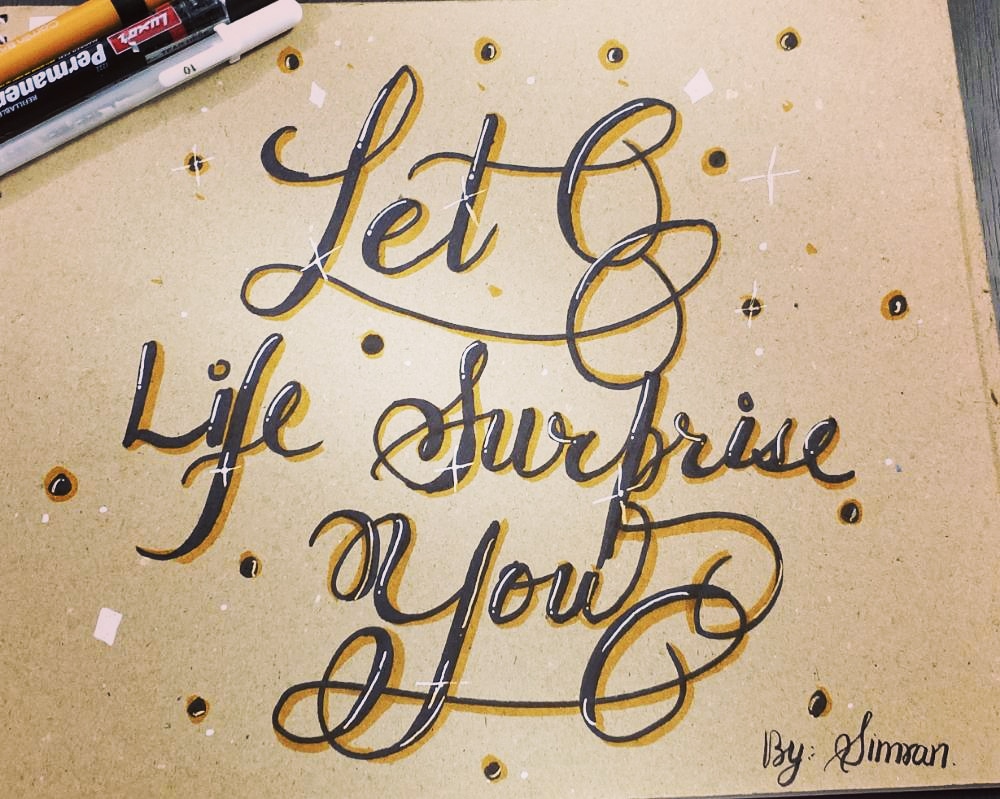 Let
Life Surprise
You
By: Simran.
Luxor
Permanent
REFILLABLE
10